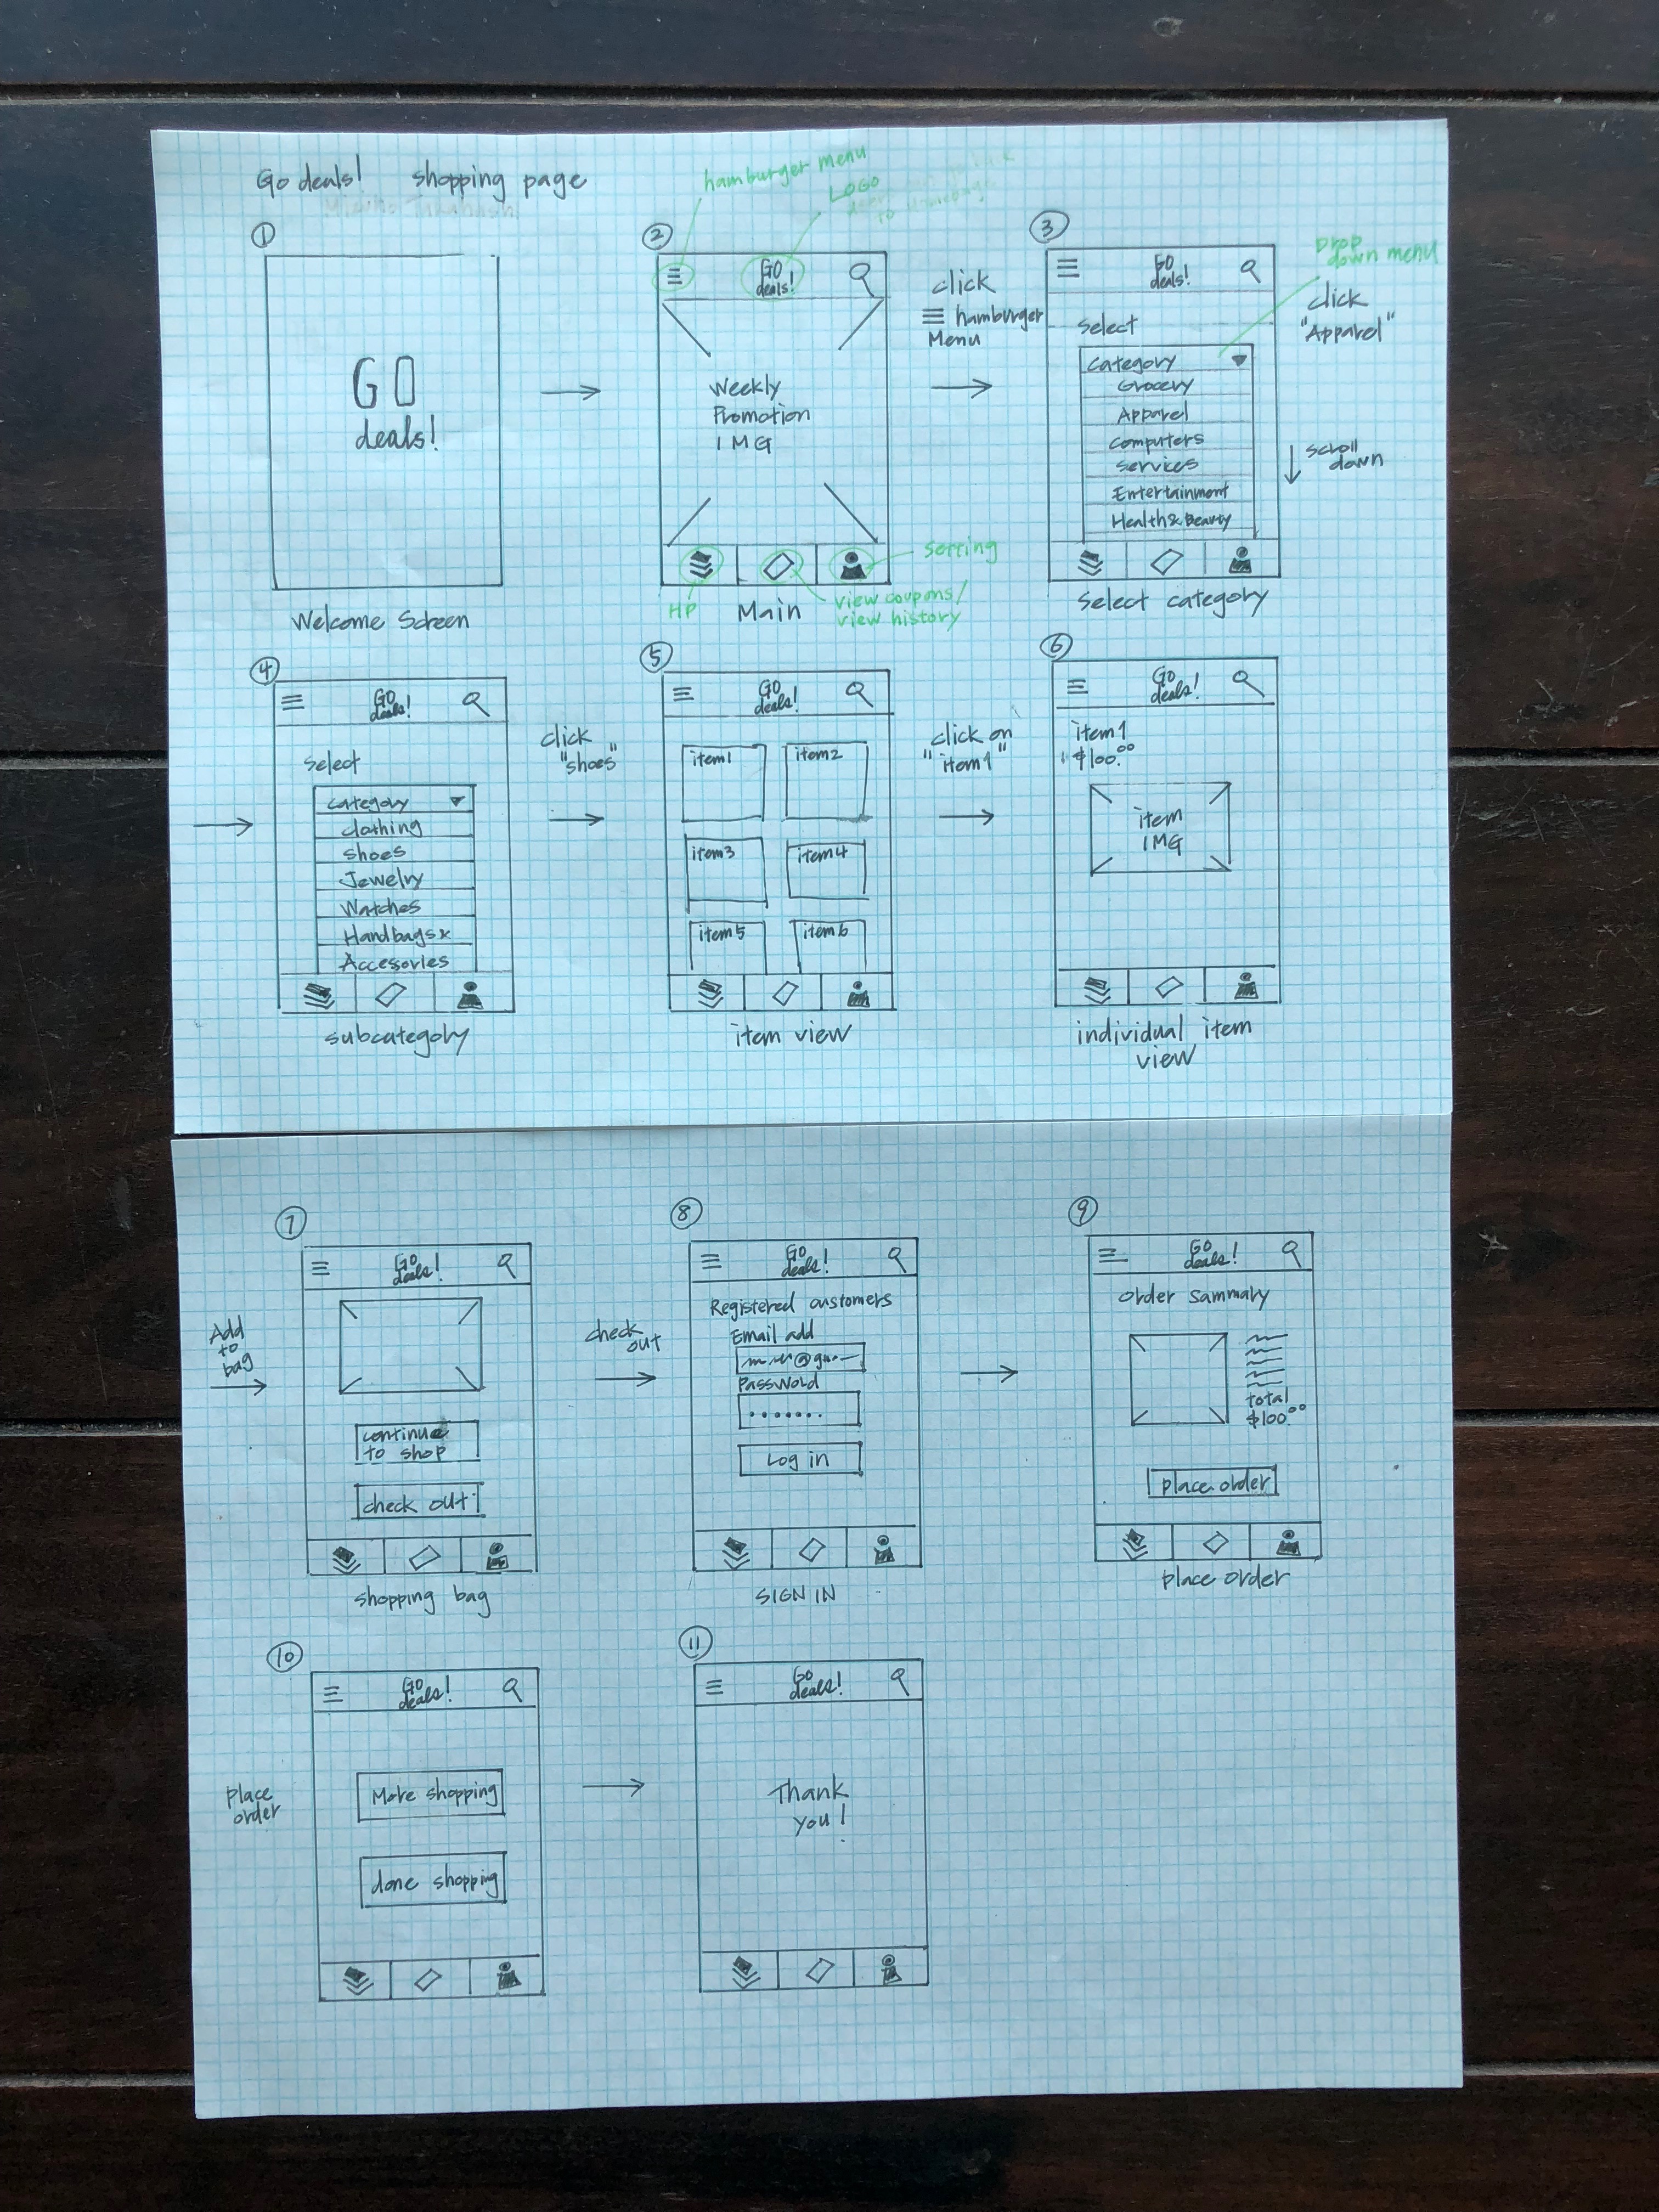 Go deals! shopping page
hamburger menu
LOGO
①
GO
deals!
Welcome Screen
②
GO
deals!
Weekly
Promotion
IMG
HP
Main
setting
view coupons/
view history
click
hamburger
Menu
③
GO
deals!
Select
category
Grocery
Apparel
computers
services
Entertainment
Health & Beauty
Select category
Drop
down menu
click
"Apparel"
scroll
down
④
GO
deals!
Select
category
clothing
shoes
Jewelry
Watches
Handbags &
Accessories
subcategory
click
"shoes"
⑤
GO
deals!
item1
item2
item3
item4
item5
item6
item view
click on
"item1"
⑥
GO
deals!
item1
$100.00
item
IMG
individual item
view
Add
to
bag
⑦
GO
deals!
continue
to shop
check out
shopping bag
check
out
⑧
GO
deals!
Registered customers
Email add
Password
Log in
SIGN IN
⑨
GO
deals!
order sammary
total
$100.00
place order
place order
place
order
⑩
GO
deals!
More shopping
done shopping
⑪
GO
deals!
Thank
you!